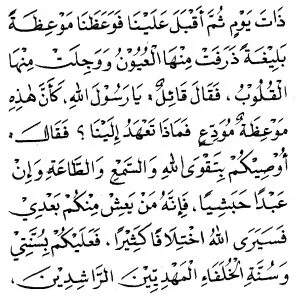 ذَاتَ يَوْمٍ ثُمَّ أَقْبَلَ عَلَيْنَا فَوَعَظَنَا مَوْعِظَةً
بَلِيغَةً ذَرَفَتْ مِنْهَا الْعُيُوْنُ وَوَجِلَتْ مِنْهَا
الْقُلُوْبُ، فَقَالَ قَائِلٌ: يَا رَسُوْلَ اللهِ، كَأَنَّ هٰذِهِ
مَوْعِظَةُ مُوَدِّعٍ فَمَاذَا تَعْهَدُ إِلَيْنَا؟ فَقَالَ:
أُوصِيْكُمْ بِتَقْوَى اللهِ وَالسَّمْعِ وَالطَّاعَةِ وَإِنْ
عَبْدًا حَبَشِيًّا، فَإِنَّهُ مَنْ يَعِشْ مِنْكُمْ بَعْدِيْ
فَسَيَرَى اللهُ اخْتِلَافًا كَثِيْرًا، فَعَلَيْكُمْ بِسُنَّتِيْ
وَسُنَّةِ الْخُلَفَاءِ الْمَهْدِيِّيْنَ الرَّاشِدِيْنَ،